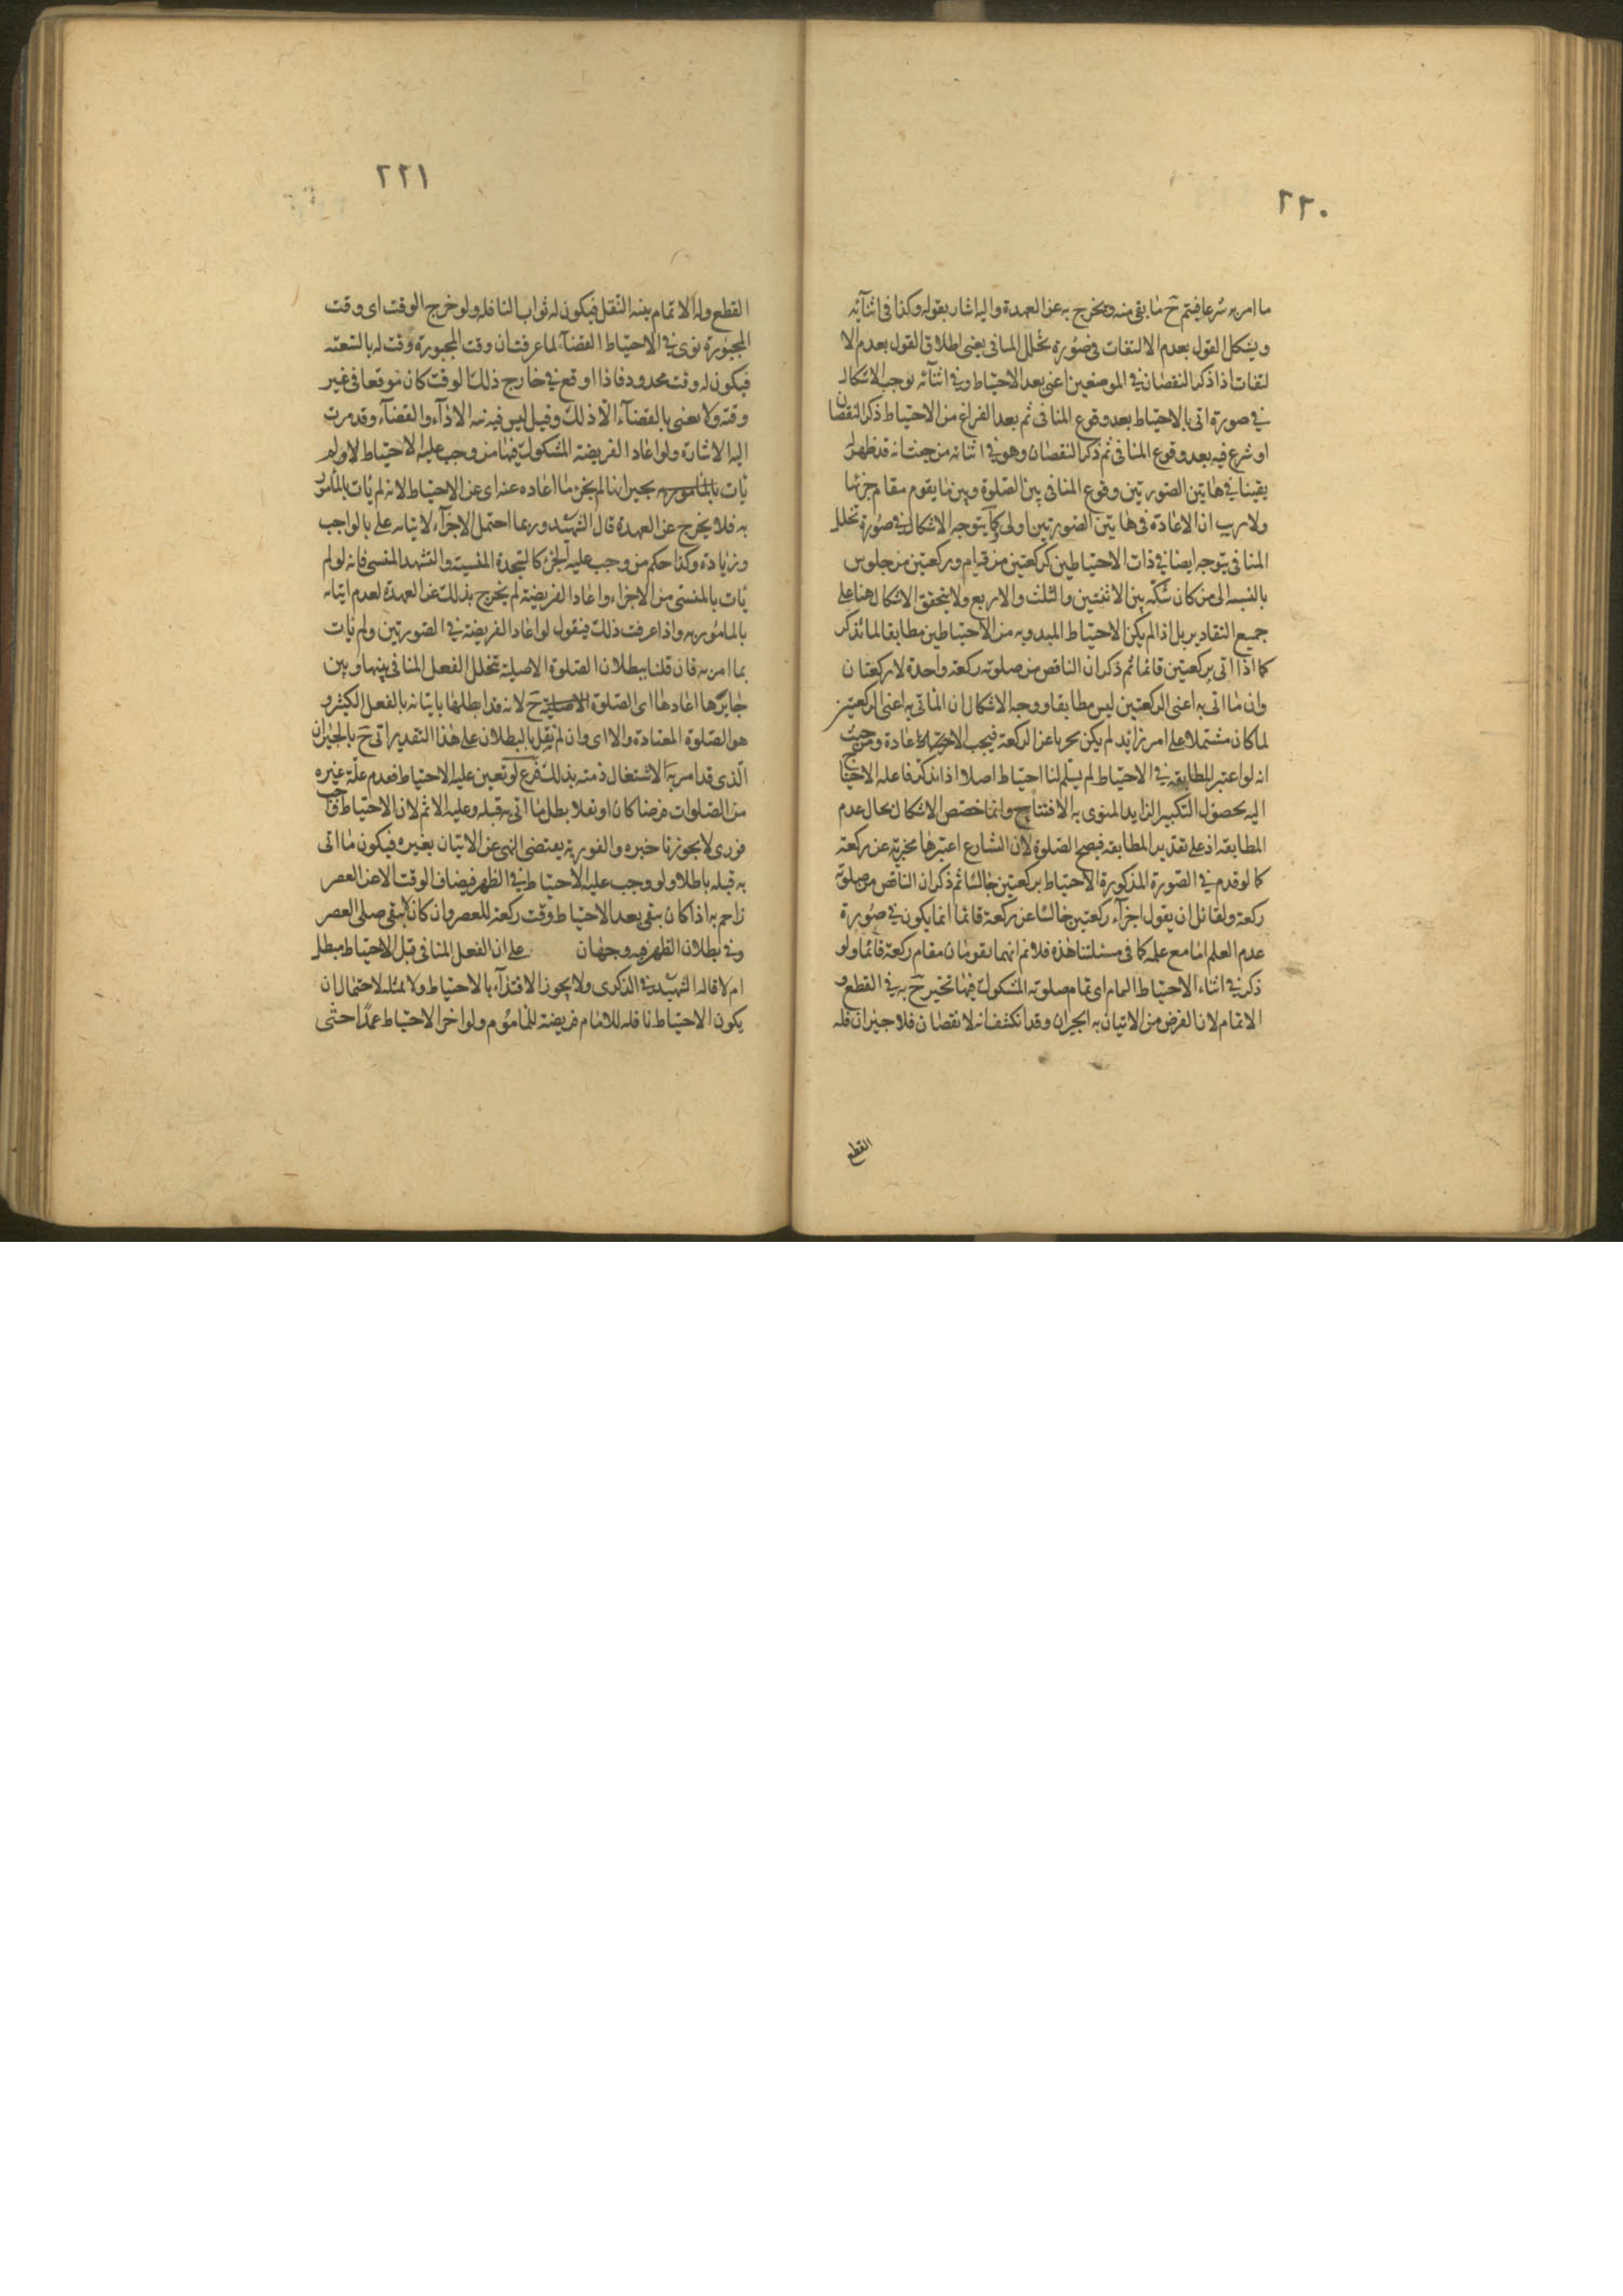 ٢٢٠
ما امر به شرعا فيتم ح ما بقى منه ويخرج به عن العهدة واليه اشار بقوله وكذا فى اثنآئه
ويشكل القول بعدم الالتفات فى صورة تخلل المنافى يعنى اطلاق القول بعدم الا
لتفات اذا ذكر النقصان فى الموضعين اعنى بعد الاحتياط وفى اثنآئه يوجب الاشكال
فى صورة اتى بالاحتياط بعد وقوع المنافى ثم بعد الفراغ من الاحتياط ذكر النقصان
او شرع فيه بعد وقوع المنافى ثم ذكر النقصان وهو فى اثنائه من حيث انه قد ظهر له
يقينا فى هاتين الصورتين وقوع المنافى بين الصلوة وبين ما يقوم مقام جزئها
ولا ريب ان الاعادة فى هاتين الصورتين اولى وكما يتوجه الاشكال فى صورة تخلل
المنافى يتوجه ايضا فى ذات الاحتياطين كركعتين من قيام وركعتين من جلوس
بالنسبه الى من كان شكه بين الاثنتين والثلث والاربع ولا يتحقق الاشكال هنا على
جميع التقادير بل اذا لم يكن الاحتياط المبدو به من الاحتياطين مطابقا لما تذكر
كما اذا اتى بركعتين قائما ثم ذكر ان الناقص من صلوته ركعة واحدة لا ركعتان
وان ما اتى به اعنى الركعتين ليس مطابقا ووجه الاشكال ان المأتى به اعنى الركعتين
لما كان مشتملا على امر زايد لم يكن مجزيا عن الركعة فيجب الاعادة ومن حيث
انه لو اعتبر المطابقه فى الاحتياط لم يسلم لنا احتياط اصلا اذا تذكر فاعله الاحتيا
اليه بحصول التكبير الزايد المنوى به الافتتاح وانما خصص الاشكال بحال عدم
المطابقه اذ على تقدير المطابقه فيصح الصلوة لان الشارع اعتبرها مجزية عن ركعة
كما لو قدم فى الصورة المذكورة الاحتياط بركعتين جالسا ثم ذكر ان الناقص من صلوته
ركعة ولقائل ان يقول اجزآء ركعتين جالسا عن ركعة قائما انما يكون فى صورة
عدم العلم اما مع علمه كما فى مسئلتنا هذه فلا نم انهما يقومان مقام ركعة قائما ولو
ذكر فى اثناء الاحتياط التمام اى تمام صلوته المشكوك فيها تخير ح به فى القطع و
الاتمام لان الغرض من الاتيان به الجبران وقد انكشف انه لا نقصان فلا جبران فله
القطع
٢٢١
القطع وله الاتمام بنية النفل فيكون له ثواب النافله ولو خرج الوقت اى وقت
المجبورة نوى فى الاحتياط القضآء لما عرفت ان وقت المجبورة وقت له بالتبعية
فيكون له وقت محدود فاذا اوقع فى خارج ذلك الوقت كان موقعا فى غير
وقته ولا نعنى بالقضآء الا ذلك وقيل ليس فيه نيه الادآء والقضآء وقد مرت
اليه الاشارة ولو اعاد الفريضة المشكوك فيها من وجب عليه الاحتياط الاول لم
يأت بجبرانها لم يجز ما اعاده عنه اى عن الاحتياط لانه لم يأت بالمأمور
به فلا يخرج عن العهدة قال الشهيد وربما احتمل الاجزآء لاتيانه على بالواجب
وزيادة وكذا حكم من وجب عليه الجزء كالسجدة المنسية والتشهد المنسى فانه لو لم
يأت بالمنسى من الاجزاء واعاد الفريضة لم يخرج بذلك عن العهدة لعدم اتيانه
بالمامور به واذا عرفت ذلك فنقول لو اعاد الفريضة فى الصورتين ولم يأت
بما امر به فان قلنا ببطلان الصلوة الاصلية بتخلل الفعل المنافى بينها وبين
جابرها اعادها اى الصلوة الاصلية ح لانه قد ابطلها باتيانه بالفعل الكثير و
هو الصلوة المعتادة والا اى وان لم نقل بالبطلان على هذا التقدير اتى ح بالجبران
الذى قد امر به لاشتغال ذمته بذلك فرع لو تعين عليه الاحتياط فقدم عليه غيره
من الصلوات فرضا كان او نفلا بطل ما اتى به قبله وعليه الاثم لان الاحتياط واجب
فورى لا يجوز تاخيره والفورية يقتضى النهى عن الاتيان بغيره فيكون ما اتى
به قبله باطلا ولو وجب عليه الاحتياط فى الظهر فيضاف الوقت الا عن العصر
زاحم به اذا كان يبقى بعد الاحتياط وقت ركعة للعصر وان كان لا يبقى صلى العصر
وفى بطلان الظهر فيه وجهان على ان الفعل المنافى قبل الاحتياط مبطل
ام لا قاله الشهيد فى الذكرى ولا يجوز الاقتدآء بالاحتياط ولا بمثله لاحتمال ان
يكون الاحتياط نافلة للامام فريضة للماموم ولو اخر الاحتياط عمدا حتى